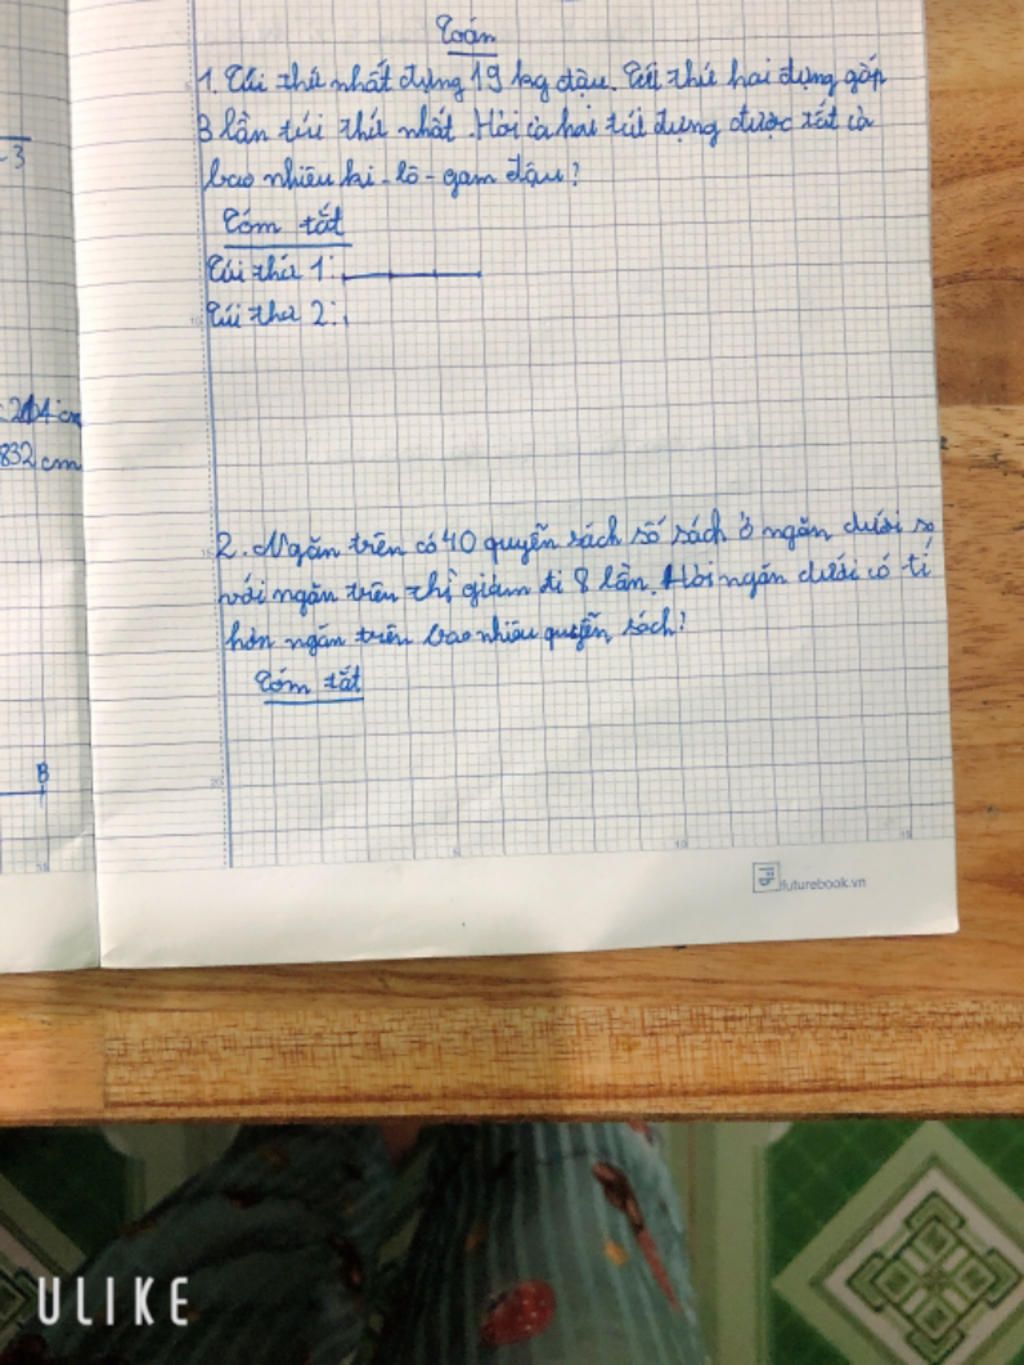 Toán
1. Túi thứ nhất đựng 19 kg đậu. Túi thứ hai đựng gấp
3 lần túi thứ nhất. Hỏi cả hai túi đựng được tất cả
bao nhiêu ki-lô-gam đậu?
Tóm tắt
Túi thứ 1:
Túi thứ 2:
2. Ngăn trên có 40 quyển sách số sách ở ngăn dưới so
với ngăn trên thì giảm đi 8 lần. Hỏi ngăn dưới có tí
hơn ngăn trên bao nhiêu quyển sách?
Tóm tắt
-3
832 cm
B
5
10
15
futurebook.vn
ULIKE